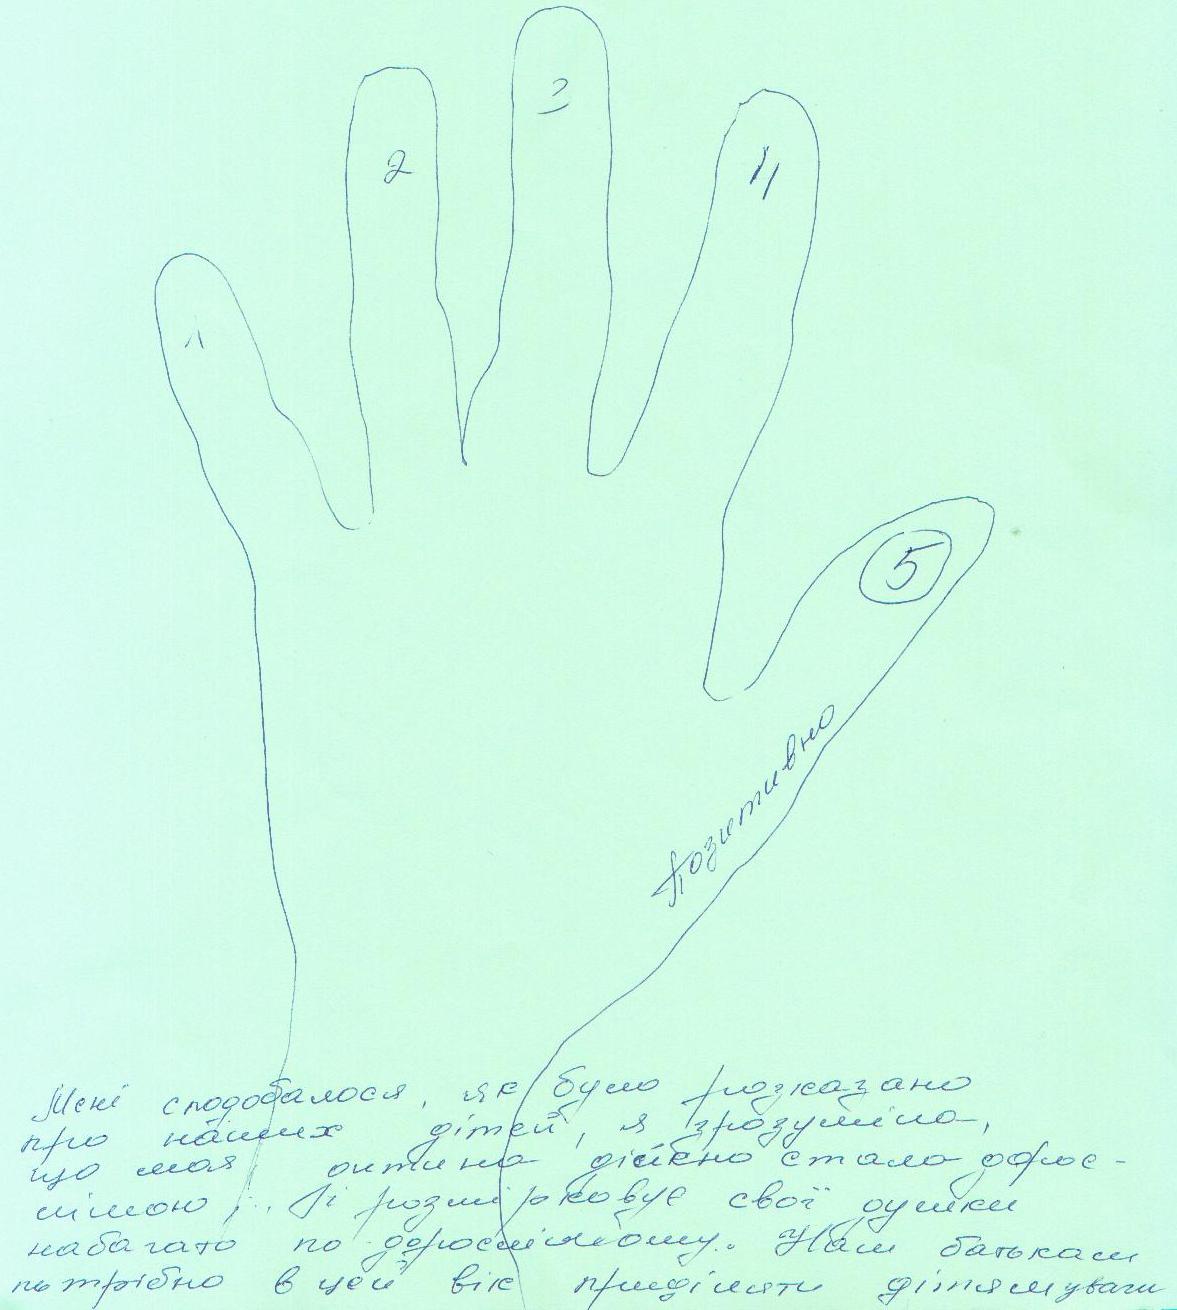 1
2
3
4
5
Позитивно
Мені сподобалося, як було розказано
про наших дітей, я зрозуміла,
що моя дитина дійсно стала дорос-
лішою і розмірковує свої думки
набагато по дорослішому. Нам батькам
потрібно в цей вік приділяти дітям уваги